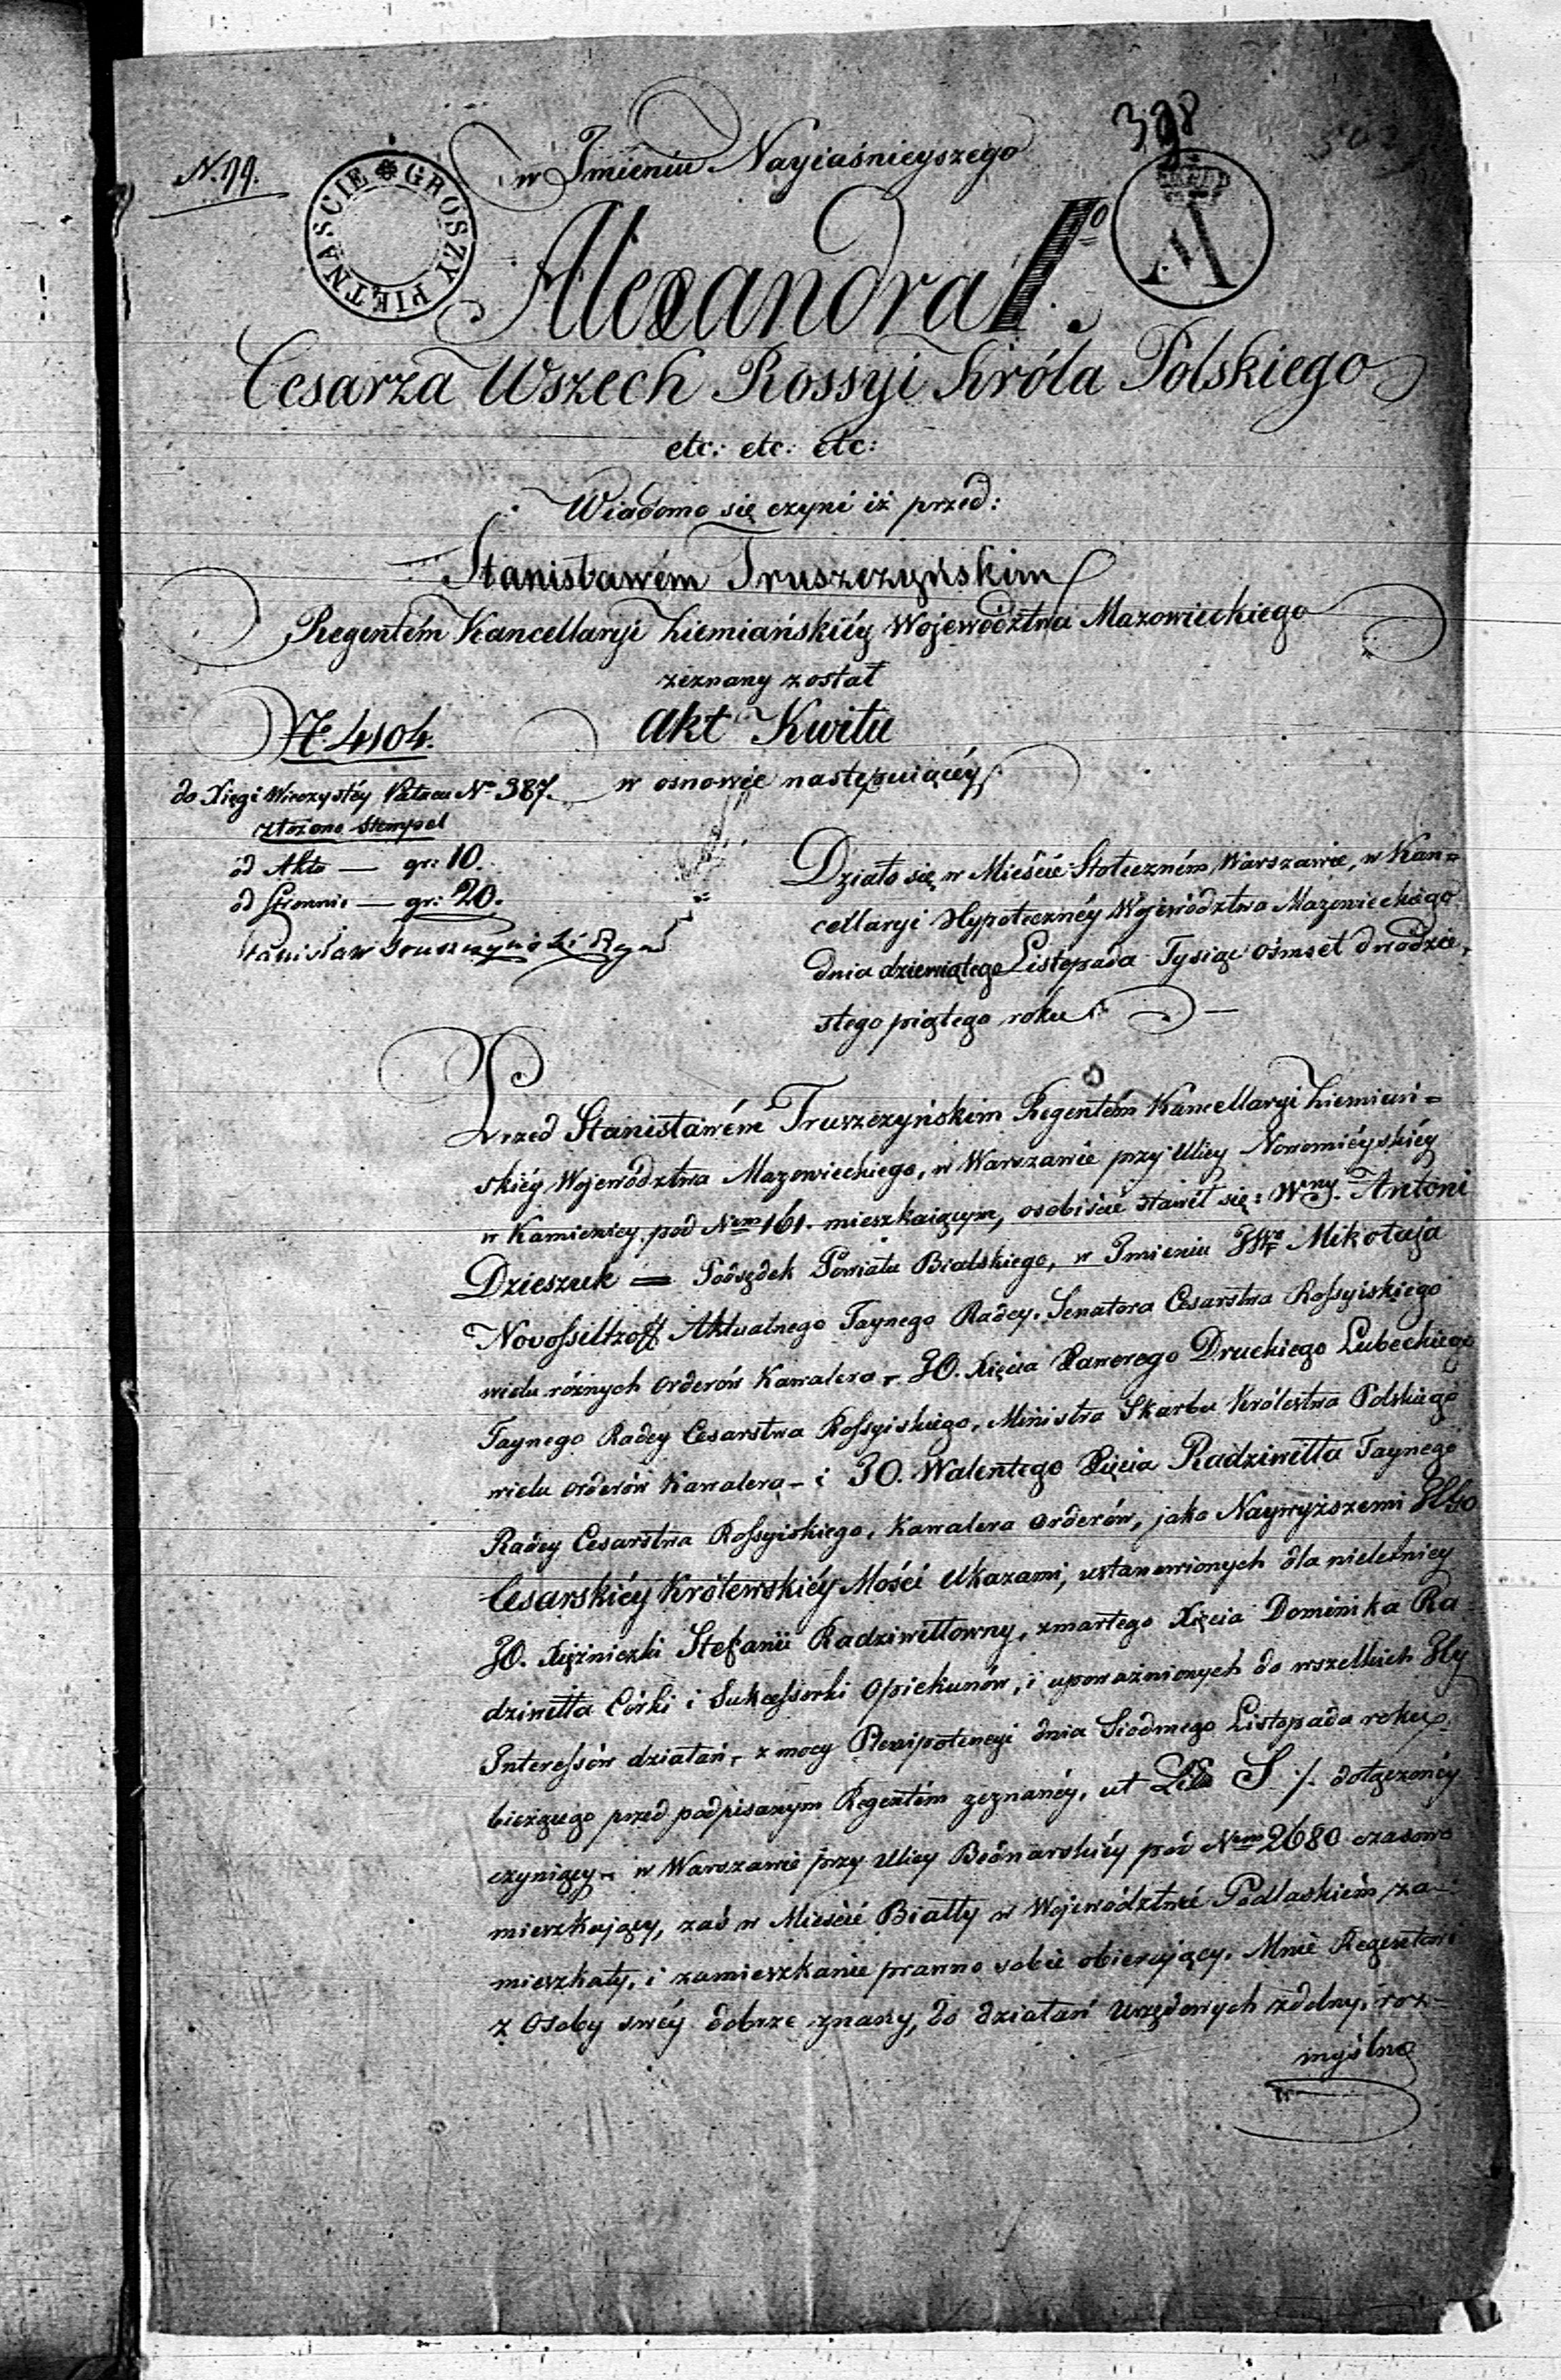 N. 99.
398
GROSZY PIĘTNAŚCIE
A
w Jmieniu Nayiaśnieyszego
Alexandra I.º
Cesarza Wszech Rossyi Króla Polskiego
etc: etc: etc:
Wiadomo się czyni iż przed:
Stanisławém Truszczyńskim
Regentém Kancellaryi Ziemiańskiéy Województwa Mazowieckiego
zeznany został
Akt Kwitu
w osnowie następuiącéy
Nº 4104.
do Xięgi Wieczystéy Pałacu Nº 387.
złożono Stempel
od Aktu — gr: 10.
od Stronnic — gr: 20.
Stanisław Truszczyński Rgnt
Działo się w Mieście Stołeczném Warszawie, w Kan=
cellaryi Hypoteczney Województwa Mazowieckiego
dnia dziewiątego Listopada Tysiąc ośmset dwódzie,
stego piątego roku
Przed Stanisławém Truszczyńskim Regentém Kancellaryi Ziemiań=
skiéy Województwa Mazowieckiego, w Warszawie przy Ulicy Nowomiéyskiéy
w Kamienicy pod Nem 161. mieszkaiącym, osobiście stawił się: Wny. Antoni
Dzieszuk = Podsędek Powiatu Bialskiego, w Jmieniu JWº Mikołaja
Novossiltzoff Aktualnego Taynego Radcy, Senatora Cesarstwa Rossyiskiego
wielu różnych orderów Kawalera, JO. Xięcia Xawerego Druckiego Lubeckiego
Taynego Radcy Cesarstwa Rossyiskiego, Ministra Skarbu Królestwa Polskiego
wielu orderów Kawalera – i JO. Walentego Xięcia Radziwiłła Taynego
Radcy Cesarstwa Rossyiskiego, Kawalera orderów, jako Naywyższemi JEgo
Cesarskiéy Królewskiéy Mości Ukazami, ustanowionych dla nieletniey
JO. Xiężniczki Stefanii Radziwiłłowny, zmarłego Xięcia Dominika Ra
dziwiłła Córki i Sukcessorki Opiekunów, i upoważnionych do wszelkich Jéy
Interessów działań, z mocy Plenipotencyi dnia Siodmego Listopada roku
bieżącego przed podpisanym Regentém zeznanéy, ut Litt. S ./. dołączonéy
czyniący – w Warszawie przy Ulicy Bednarskiéy pod Nem 2680 czasowo
mieszkający, zaś w Mieście Biały w Województwie Podlaskiém za=
mieszkały, i zamieszkanie prawno sobie obierający. Mnie Regentowi
z Osoby swéy dobrze znany, do działań Urzędowych zdolny, roz=
myślne